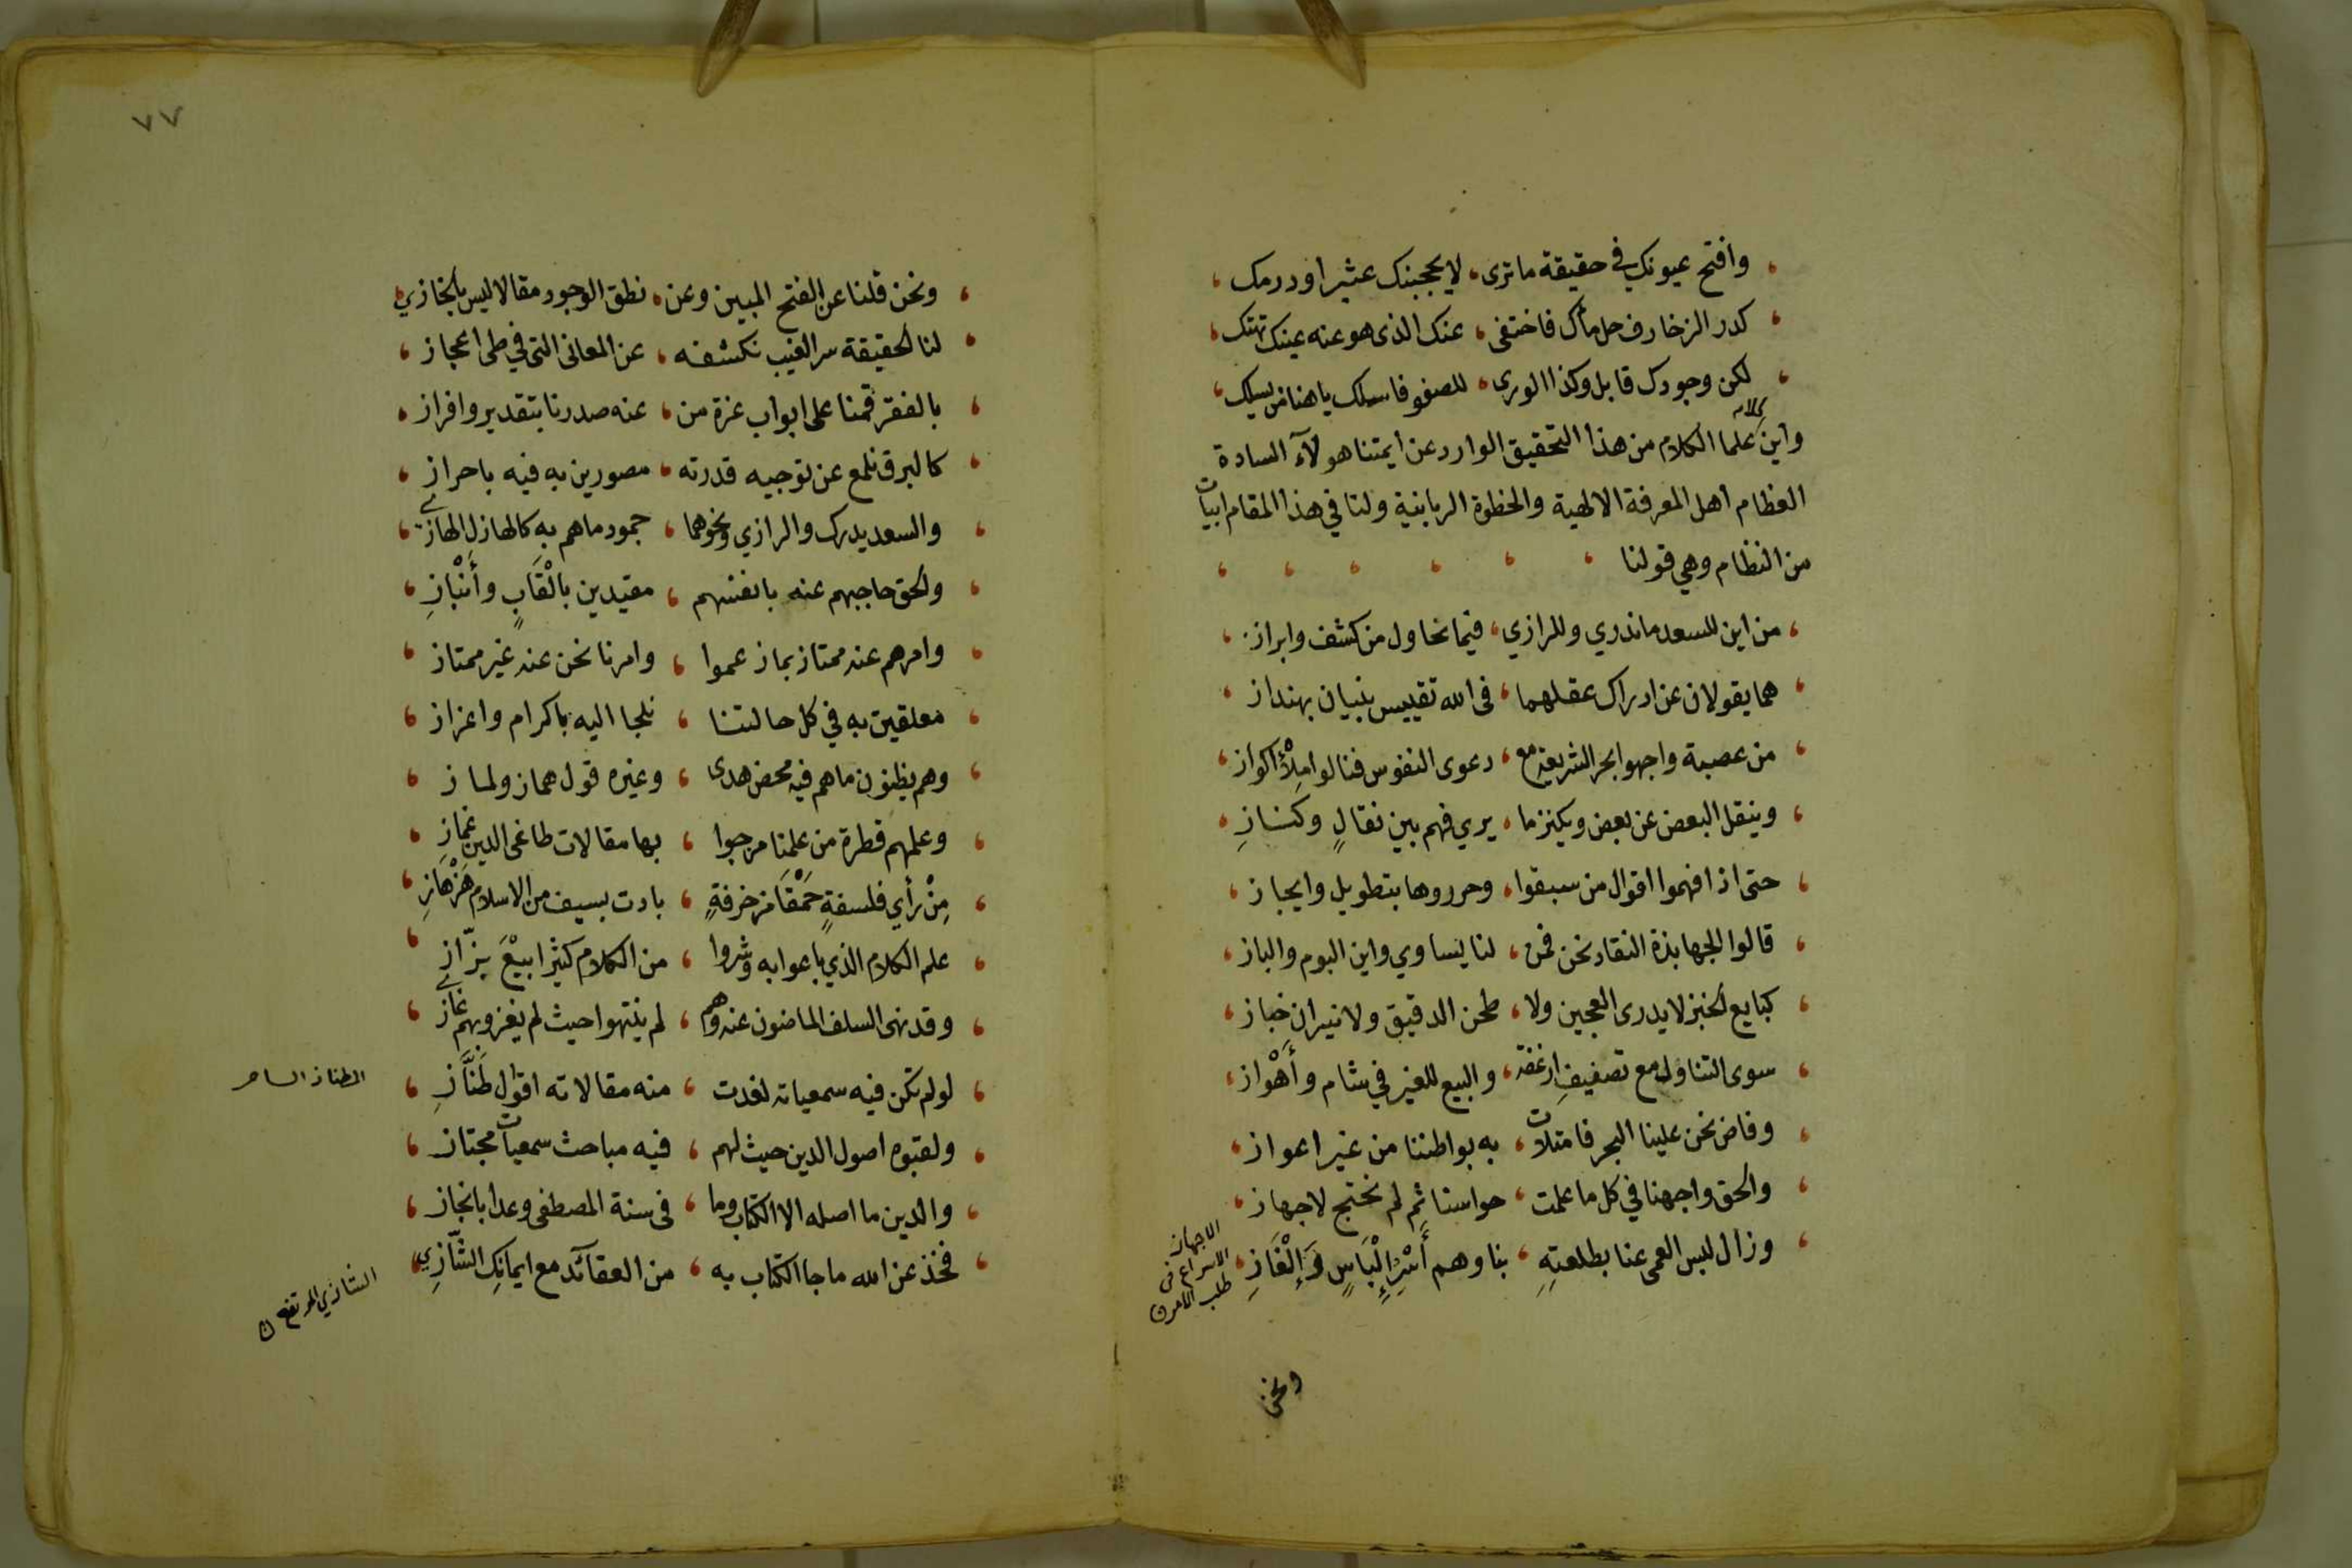 وافتح عيونك في حقيقة ما ترى ، لا يحجبنك عثير او درمك
كدر الزخارف حل ماك فاختفى ، عنك الذى هو عنه عينك تهتك
لكن وجودك قابل وكذا الورى ، للصفو فاسلك يا هنا من يسلك
واين كلام علما الكلام من هذا التحقيق الوارد عن ايمتنا هولآء السادة
العظام اهل المعرفة الالهية والحظوة الربانية ولنا في هذا المقام ابيات
من النظام وهي قولنا
من اين للسعد ما ندري وللرازي ، فيما نحاول من كشف وابراز
هما يقولان عن ادراك عقلهما ، فى الله تقييس بنيان بهنداز
من عصبة واجهوا بحر الشريعة مع ، دعوى النفوس فنالوا مِلْأَ اكواز
وينقل البعض عن بعض ويكنز ما ، يرى فهم بين نقالٍ وكنازِ
حتى اذا فهموا اقوال من سبقوا ، وحرروها بتطويل وايجاز
قالوا الجهابذة النقاد نحن فمن ، لنا يساوي واين البوم والباز
كبايع الخبز لا يدرى العجين ولا ، طحن الدقيق ولا نيران خباز
سوى التناول مع تصفيفِ ارغفة ، والبيع للغير في شام وأَهْواز
وفاض نحن علينا البحر فامتلات ، به بواطننا من غير اعواز
والحق واجهنا في كل ما علمت ، حواسنا ثم لم نحتج لاجهاز
وزال لبس العمى عنا بطلعتِهِ ، بنا وهم أَسْرُ إِلْبَاسٍ وَإِلْغَازِ
الاجهاز
الاسراع فى
طلب الامر
ونحن
٧٧
ونحن قلنا عن الفتح المبين وعن ، نطق الوجود مقالا ليس بالخازي
لنا الحقيقة سر الغيب نكشفه ، عن المعانى التى في طى اعجاز
بالفقر قمنا على ابواب عزة من ، عنه صدرنا بتقدير وافراز
كالبرق نلمع عن توجيه قدرته ، مصورين به فيه باحراز
والسعد يدرك والرازي ونحوهما ، جمود ما هم به كالهازل الهازي
والحق حاجبهم عنه بانفسهم ، مقيدين بالْقَابٍ وأَنْبازِ
وامرهم عنه ممتاز بما زعموا ، وامرنا نحن عنه غير ممتاز
معلقين به في كل حالتنا ، نلجا اليه باكرام واعزاز
وهم يظنون ما هم فيه محض هدى ، وغيره قول هماز ولماز
وعلمهم قطرة من علمنا مزجوا ، بها مقالات طاغى الدين غمازِ
مِنْ رأي فلسفةٍ حَمْقَا مزخرفةٍ ، بادت بسيف من الاسلام هَزْهَازِ
علم الكلام الذي باعوا به وشروا ، من الكلام كثيرا بيْعَ بزّازِ
وقد نهى السلف الماضون عنه وهم ، لم ينتهوا حيث لم يغزو بهم غازي
لو لم تكن فيه سمعيات لغدت ، منه مقالاته اقوال طَنَّازِ
الطناز الساخر
ولقبوه اصول الدين حيث لهم ، فيه مباحث سمعيات مجتاز
والدين ما اصله الا الكتاب وما ، فى سنة المصطفى وعدا بانجاز
فخذ عن الله ما جا الكتاب به ، من العقآئد مع ايمانِك الشَّازِي
الشازي المرتفع